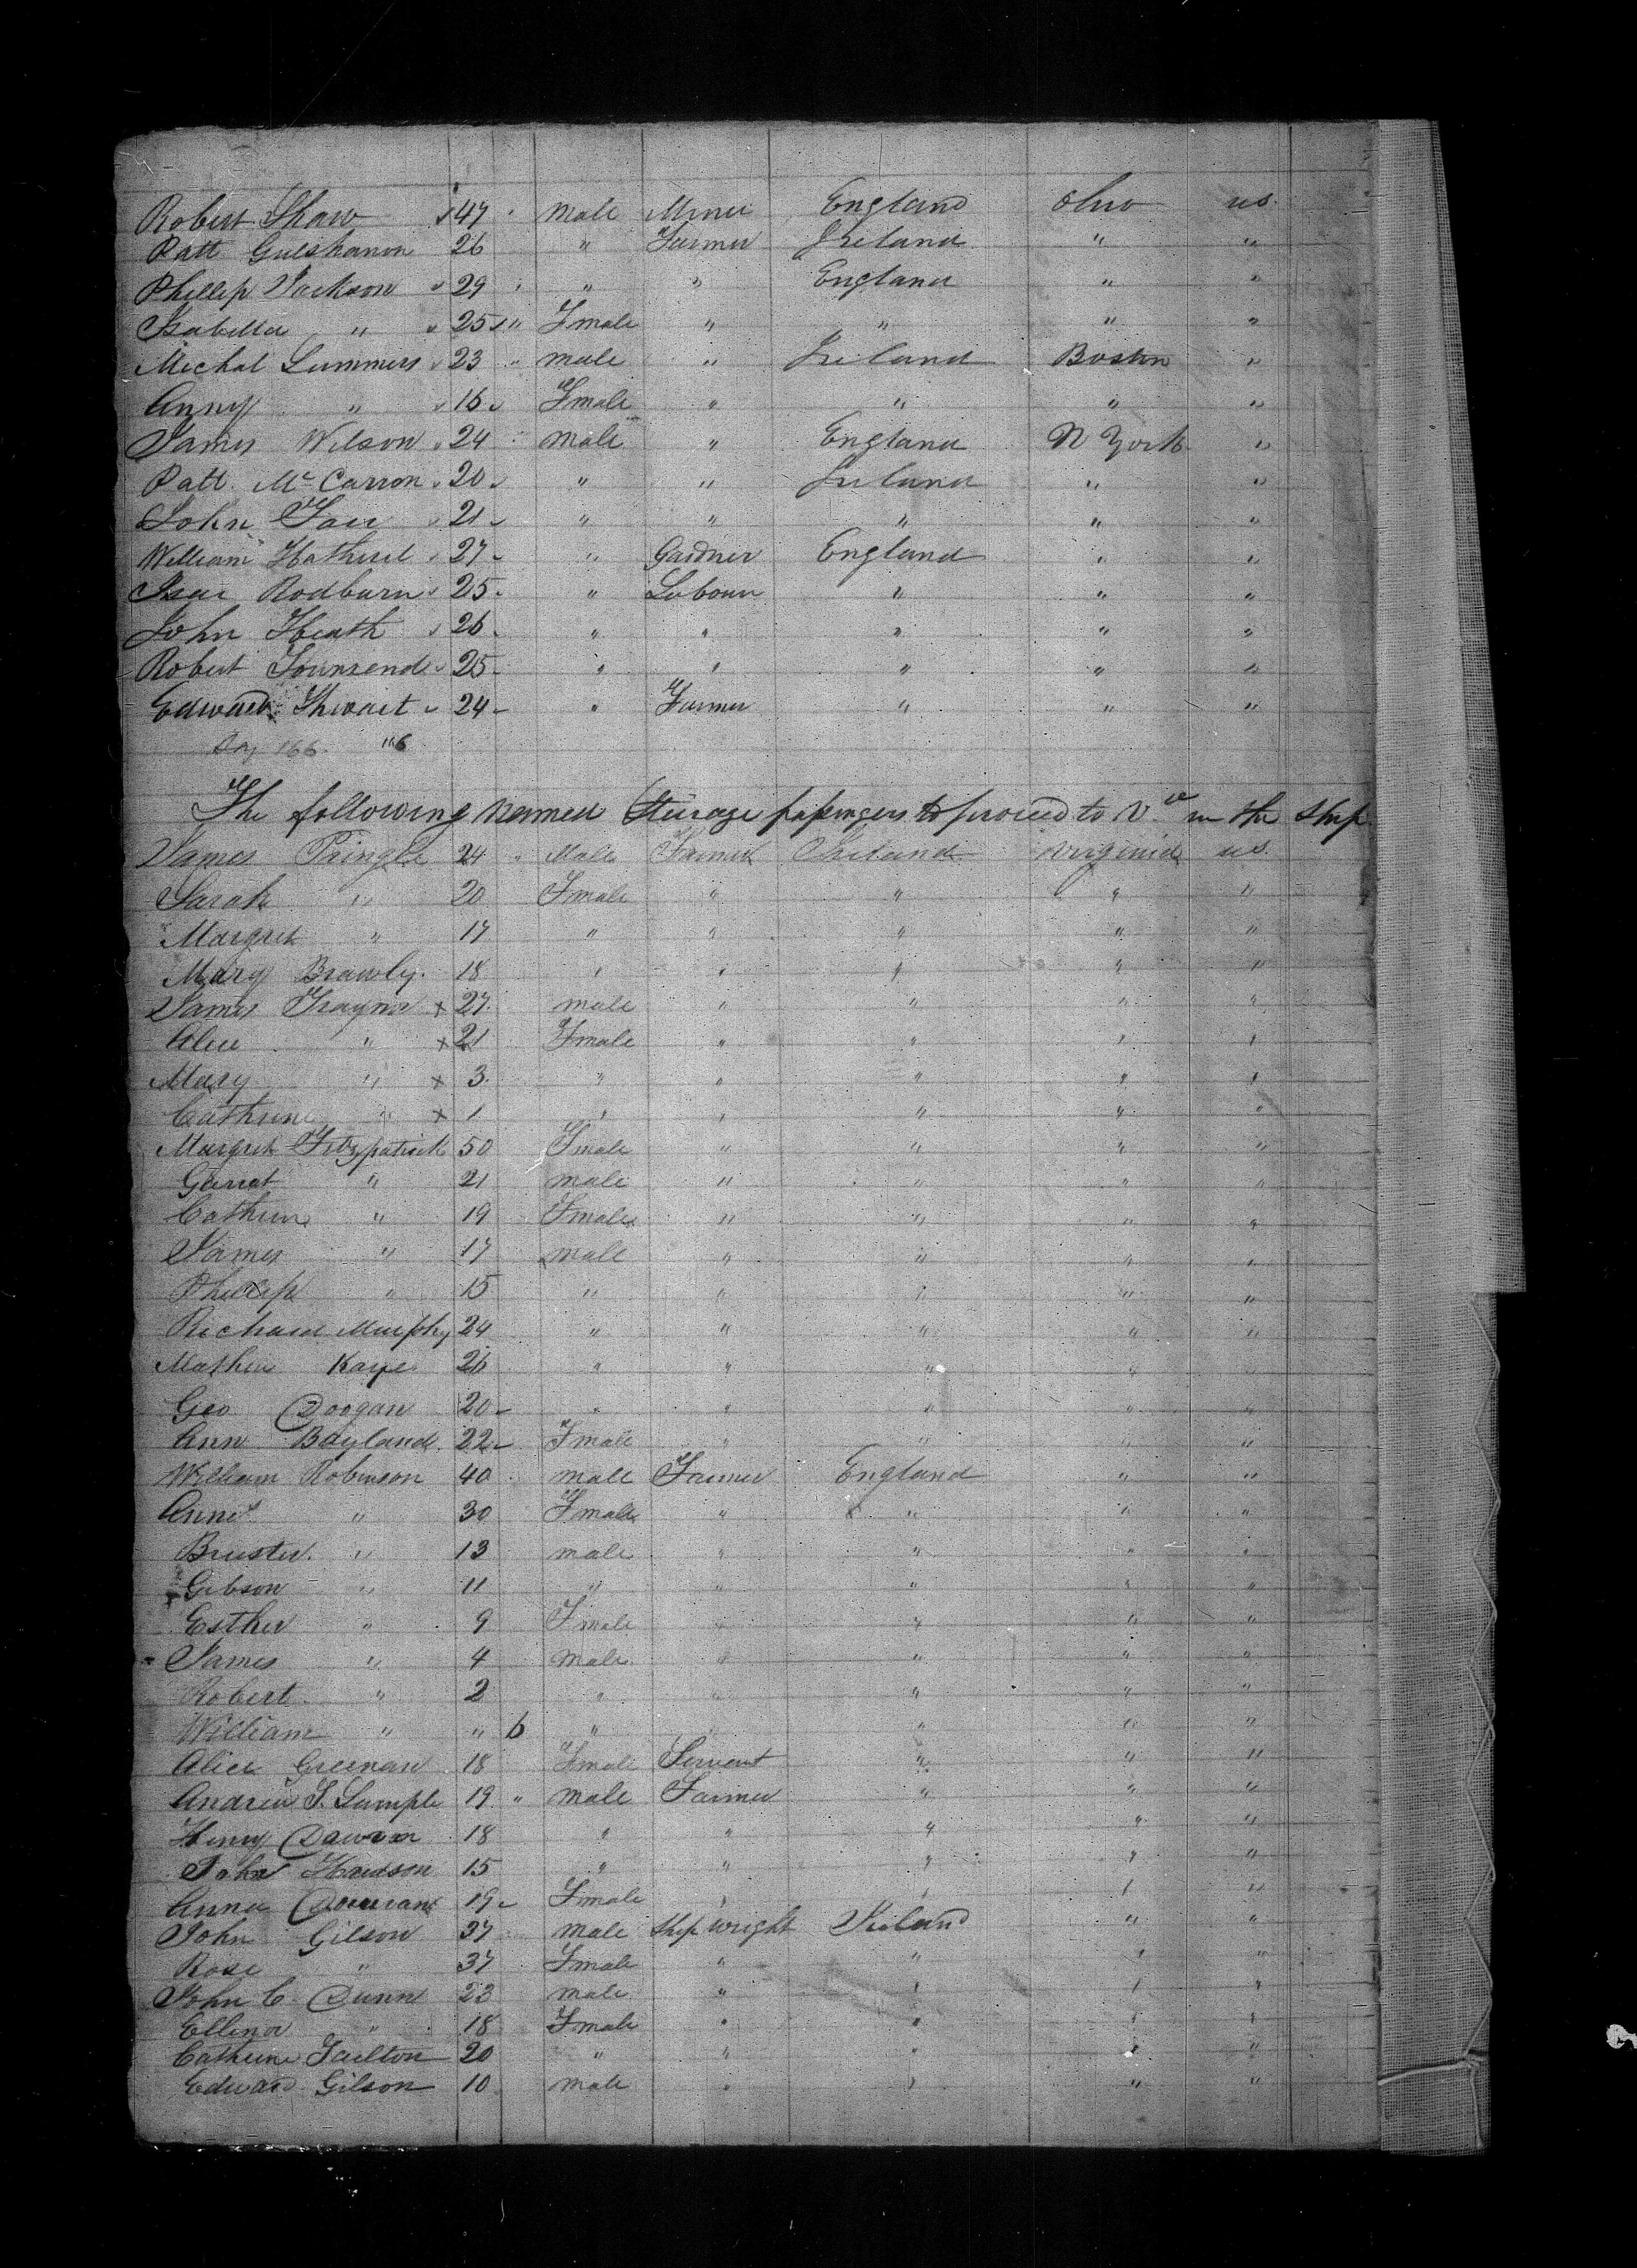 Robert Shaw 47 " Male Miner England Ohio US.
Patt 26 " Farmer Ireland " "
Phillip Jackson 29 " " " England " "
Isabella " 25 " Fmale " " " "
Michal Summers 23 " male " Ireland Boston "
Anny " 16 Fmale " " " "
James Wilson 24 " male " England N York "
Patt Mc Carron 20 " " Ireland " "
John 21 " " " " "
William 27 " Gardner England " "
Isac Rodburn 25 " Labour " " "
John Heath 26 " " " " "
Robert Townsend 25 " " " " "
Edward 24 " Farmer " " "
166 "6
The following named Sturage passengers to proceed to V. in the Ship
James Pringle 24 " Male Farmer Ireland Virginia US.
Sarah " 20 Fmale " " " "
Margret " 17 " " " " "
Mary Brawly. 18 " " " " "
James Traynor x 27 male " " " "
Alice " x 21 Fmale " " " "
Mary " x 3 " " " " "
Cathrine " x 1 " " " " "
Margret Fitzpatrick 50 Fmale " " " "
Garrat " 21 male " " " "
Cathrine " 19 Fmale " " " "
James " 17 male " " " "
Phillip " 15 " " " " "
Richard Murphy 24 " " " " "
Mathew Kaye 26 " " " " "
Geo Doogan 20 " " " " "
Ann Boyland 22 Fmale " " " "
William Robinson 40 male Farmer England " "
Anne " 30 Fmale " " " "
Bruster " 13 male " " " "
Gibson " 11 " " " " "
Esther " 9 Fmale " " " "
James " 4 Male " " " "
Robert " 2 " " " " "
William " " 6 " " " "
Alice Greenan 18 Fmale Servent " " "
Andrew S. Sample 19 " male Farmer " " "
Henry Dawson 18 " " " " "
John Hudson 15 " " " " "
Anna 19 Fmale " " " "
John Gilson 37 male Ship wright Ireland " "
Rose " 37 Fmale " " " "
John C Dunn 23 male " " " "
Ellenor " 18 Fmale " " " "
Cathrine 20 " " " " "
Edward Gilson 10 male " " " "